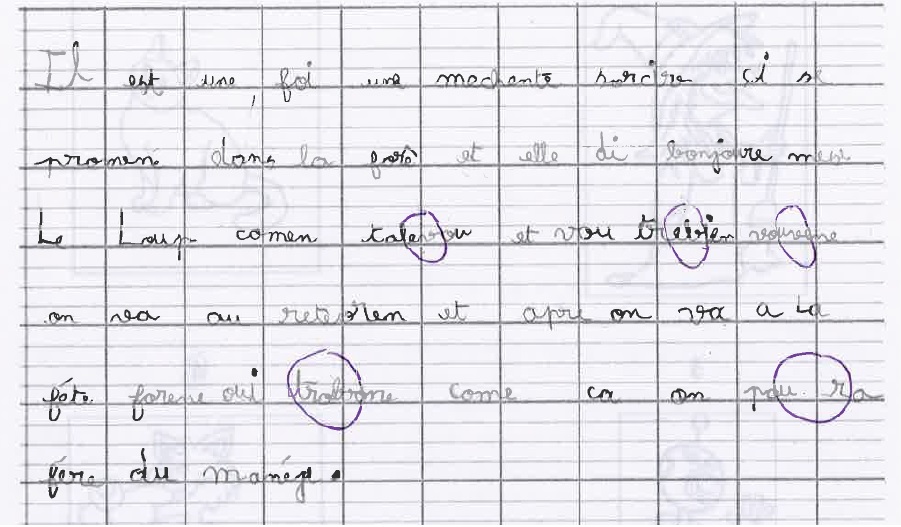 Il est une foi une mechante sorcière ci se
promené dans la forè et elle di bonjoure mesi
Le Loup comen talevou et vou trèirien
on va au reten et apre on va a la
féte forene oui come ca on poura
fère du manége.